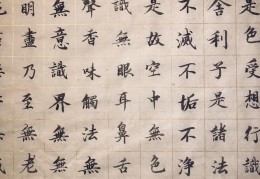 是色受想行識
舍利子是諸法
不滅不垢不淨
是故空中無色
識無眼耳鼻舌
聲香味觸法無
無意識界無無
明盡乃至無老